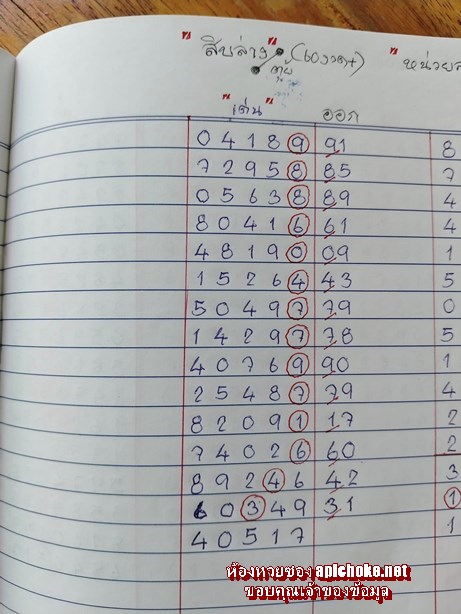 "สิบล่าง" (บงวด+) "หน่วยล
"เด่น" ออก
0 4 1 8 9 91 8
7 2 9 5 8 85 7
0 5 6 3 8 89 4
8 0 4 1 6 61 4
4 8 1 9 0 09 1
1 5 2 6 4 43 5
5 0 4 9 7 79 0
1 4 2 9 7 78 5
4 0 7 6 9 90 1
2 5 4 8 7 79 4
8 2 0 9 1 17 2
7 4 0 2 6 60 2
8 9 2 4 6 42 3
6 0 3 4 9 31 1
4 0 5 1 7 1
ห้องหวยซอง apichoke.net
ขอบคุณเจ้าของข้อมูล